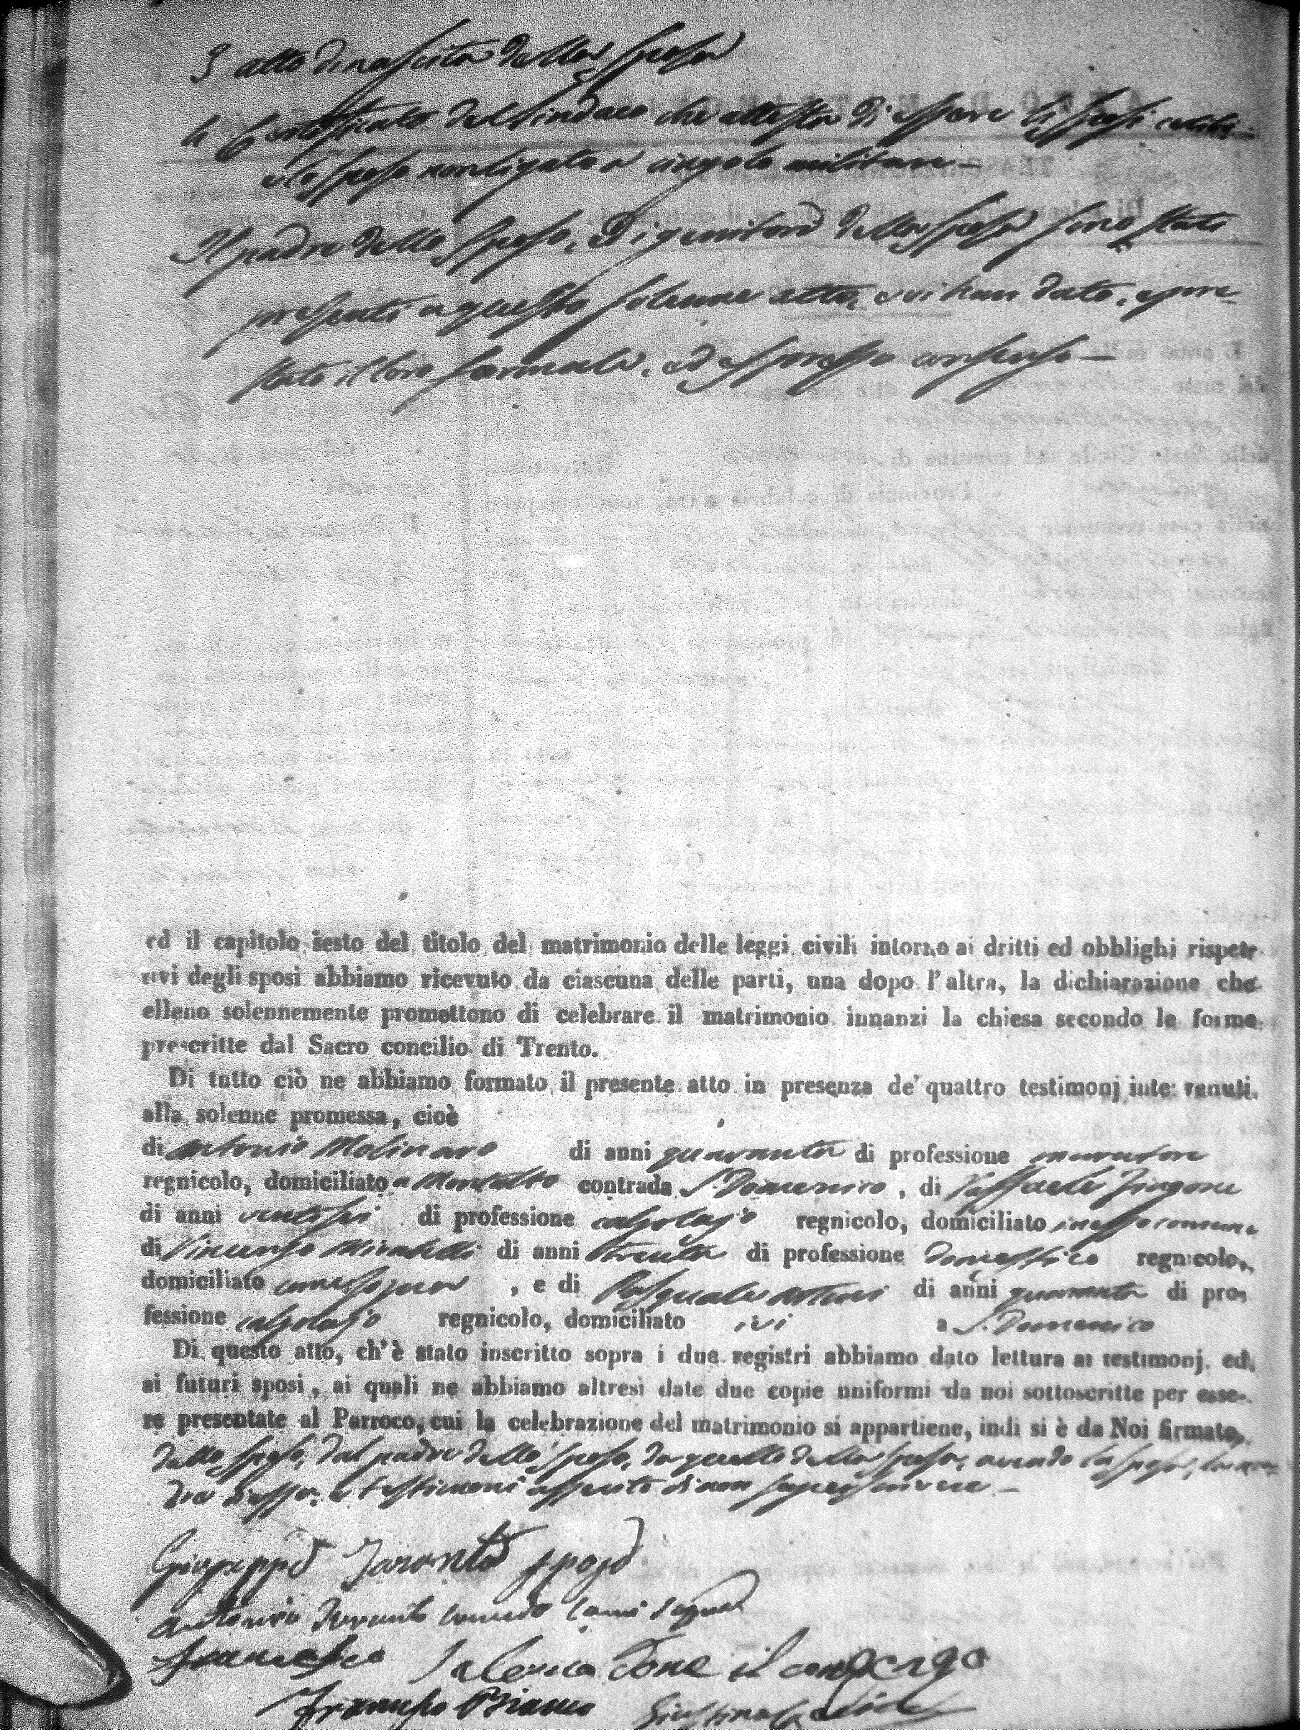 3 atto di nascita della sposa
4 Certificato del Sindaco che attesta di essere li sposi celibi
e lo sposo non ligato a cingolo militare —
Il padre dello Sposo, Ed i genitori della sposa sono stati
presenti a questo solenne atto, e vi han dato, e pre-
stato il loro formale, ed espresso consenso —
ed il capitolo sesto del titolo del matrimonio delle leggi civili intorno ai dritti ed obblighi rispet-
tivi degli sposi abbiamo ricevuto da ciascuna delle parti, una dopo l'altra, la dichiarazione che
elleno solennemente promettono di celebrare il matrimonio innanzi la chiesa secondo le forme
prescritte dal Sacro concilio di Trento.
Di tutto ciò ne abbiamo formato il presente atto in presenza de' quattro testimonj intervenuti
alla solenne promessa, cioè
di Antonio Molinaro di anni quaranta di professione muratore
regnicolo, domiciliato a Montalto contrada S. Domenico, di Raffaele
di anni ventisei di professione calzolajo regnicolo, domiciliato in esso comune
di Vincenzo Mirabelli di anni trenta di professione domestico regnicolo,
domiciliato come sopra, e di Pasquale di anni quaranta di pro-
fessione calzolajo regnicolo, domiciliato ivi a S. Domenico
Di questo atto, ch'è stato inscritto sopra i due registri abbiamo dato lettura ai testimonj, ed
ai futuri sposi, ai quali ne abbiamo altresì date due copie uniformi da noi sottoscritte per esse-
re presentate al Parroco, cui la celebrazione del matrimonio si appartiene, indi si è da Noi firmato,
dallo sposo, dal padre dello sposo, da quello della sposa, avendo la sposa, la ma-
dre di essa, e testimoni asserito di non saper scrivere —
Giuseppe Taranto sposo
Antonio Taranto
Francesco
Francesco Bianco